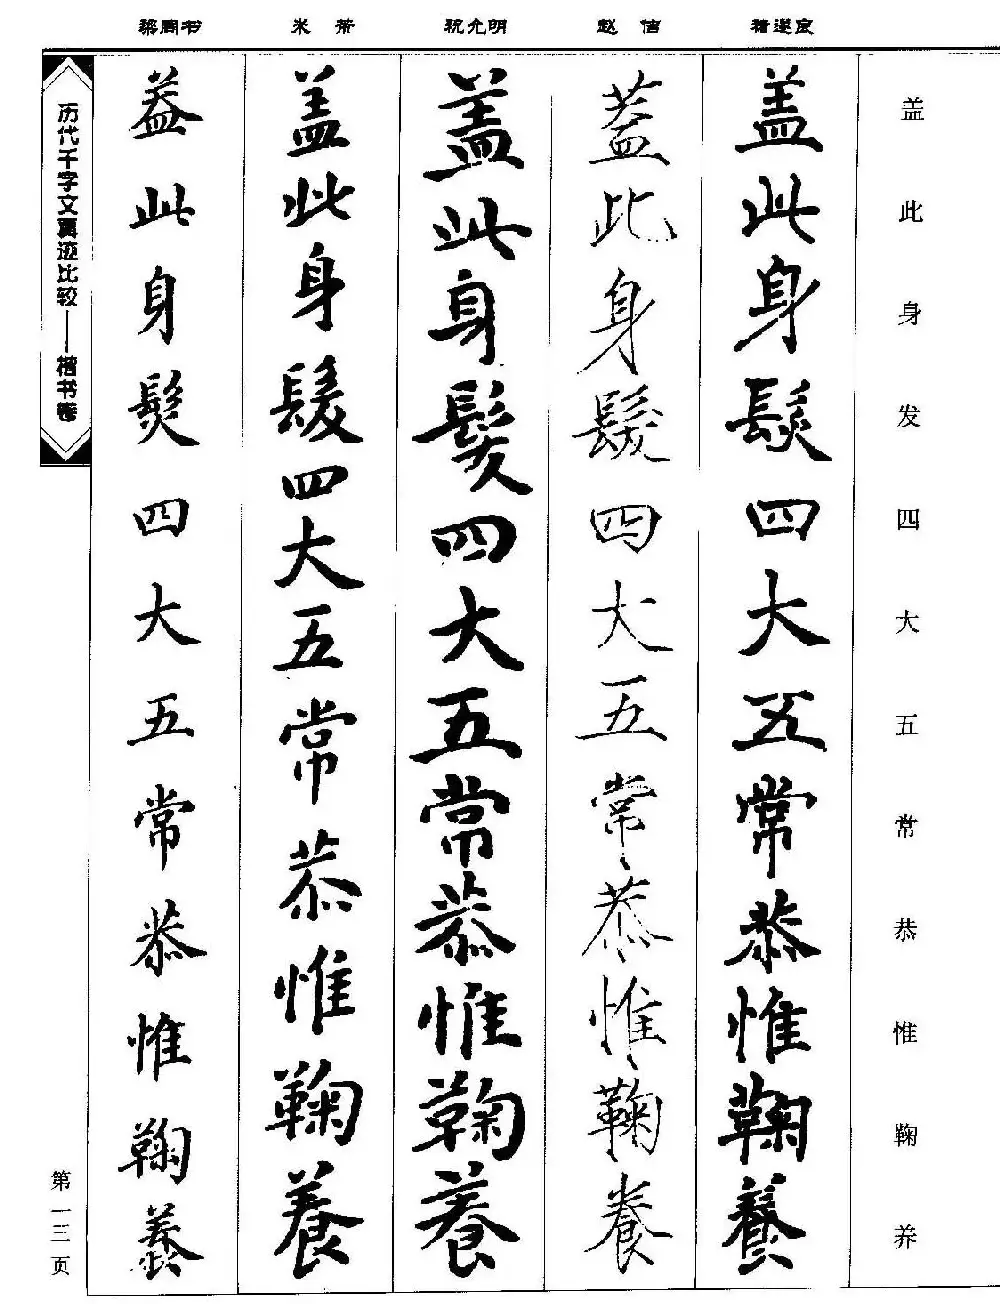 盖此身发四大五常恭惟鞠养
褚遂良
盖此身髮四大五常恭惟鞠養
赵 佶
蓋此身髮四大五常恭惟鞠養
祝允明
盖此身髮四大五常恭惟鞠養
米 芾
盖此身髮四大五常恭惟鞠養
梁同书
葢此身髮四大五常恭惟鞠養
历代千字文真迹比较——楷书卷
第一三页